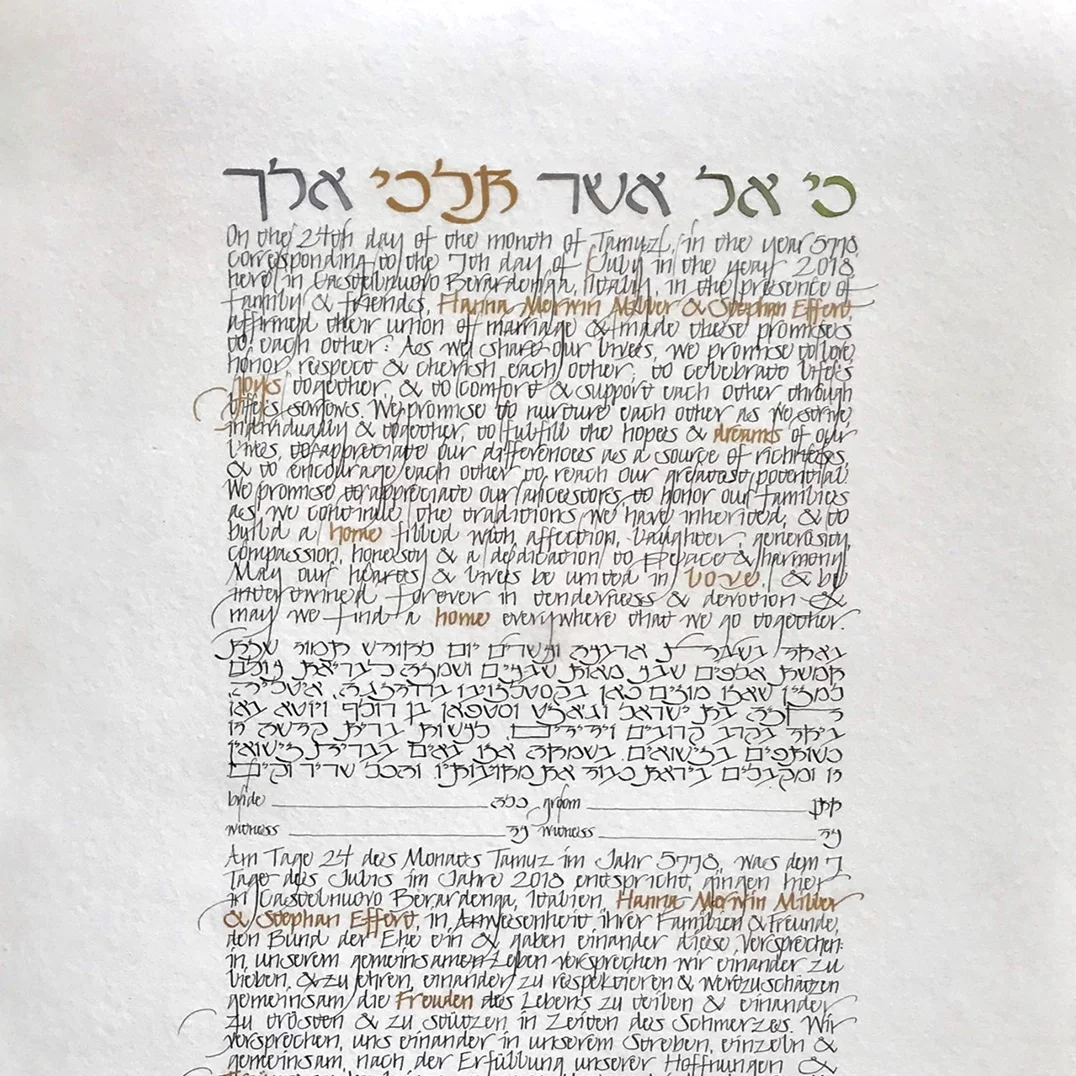 כי אל אשר תלכי אלך
On the 24th day of the month of Tamuz, in the year 5778,
corresponding to the 7th day of July in the year 2018,
here in Castelnuovo Berardenga, Italy, in the presence of
family & friends, Hanna Merwin Miller & Stephan Effert,
affirmed their union of marriage & made these promises
to each other: As we share our lives, we promise to love,
honor, respect & cherish each other; to celebrate life's
joys together, & to comfort & support each other through
life's sorrows. We promise to nurture each other as we strive,
individually & together, to fulfill the hopes & dreams of our
lives, to appreciate our differences as a source of richness,
& to encourage each other to reach our greatest potential.
We promise to appreciate our ancestors, to honor our families
as we continue the traditions we have inherited, & to
build a home filled with affection, laughter, generosity,
compassion, honesty & a dedication to peace & harmony.
May our hearts & lives be united in love, & be
intertwined forever in tenderness & devotion &
may we find a home everywhere that we go together.
באחד בשבת ארבעה ועשרים יום לחודש תמוז שנת
חמשת אלפים שבע מאות שבעים ושמנה לבריאת עולם
למנין שאנו מונים כאן בקסטלנובו ברדרנגה, איטליה,
בת ישראל וסטפאן בן
ביחד בקרב קרובים וידידים, לעשות ברית קדשה זו
כשותפים בנישואים. בשמחה אנו באים בברית נישואין
זו ומקבלים בידאת כבוד את מחויבותינו. והכל שריר וקים
bride כלה groom חתן
witness עד witness עד
Am Tage 24 des Monats Tamuz im Jahr 5778, was dem 7
Tage des Julis im Jahre 2018 entspricht, gingen hier
in Castelnuovo Berardenga, Italien, Hanna Merwin Miller
& Stephan Effert, in Anwesenheit ihrer Familien & Freunde,
den Bund der Ehe ein & gaben einander diese Versprechen:
in unserem gemeinsamen Leben versprechen wir einander zu
lieben, & zu ehren, einander zu respektieren & wertzuschätzen
gemeinsam die Freuden des Lebens zu teilen & einander
zu trösten & zu stützen in Zeiten des Schmerzes. Wir
versprechen, uns einander in unserem Streben, einzeln &
gemeinsam, nach der Erfüllung unserer Hoffnungen &